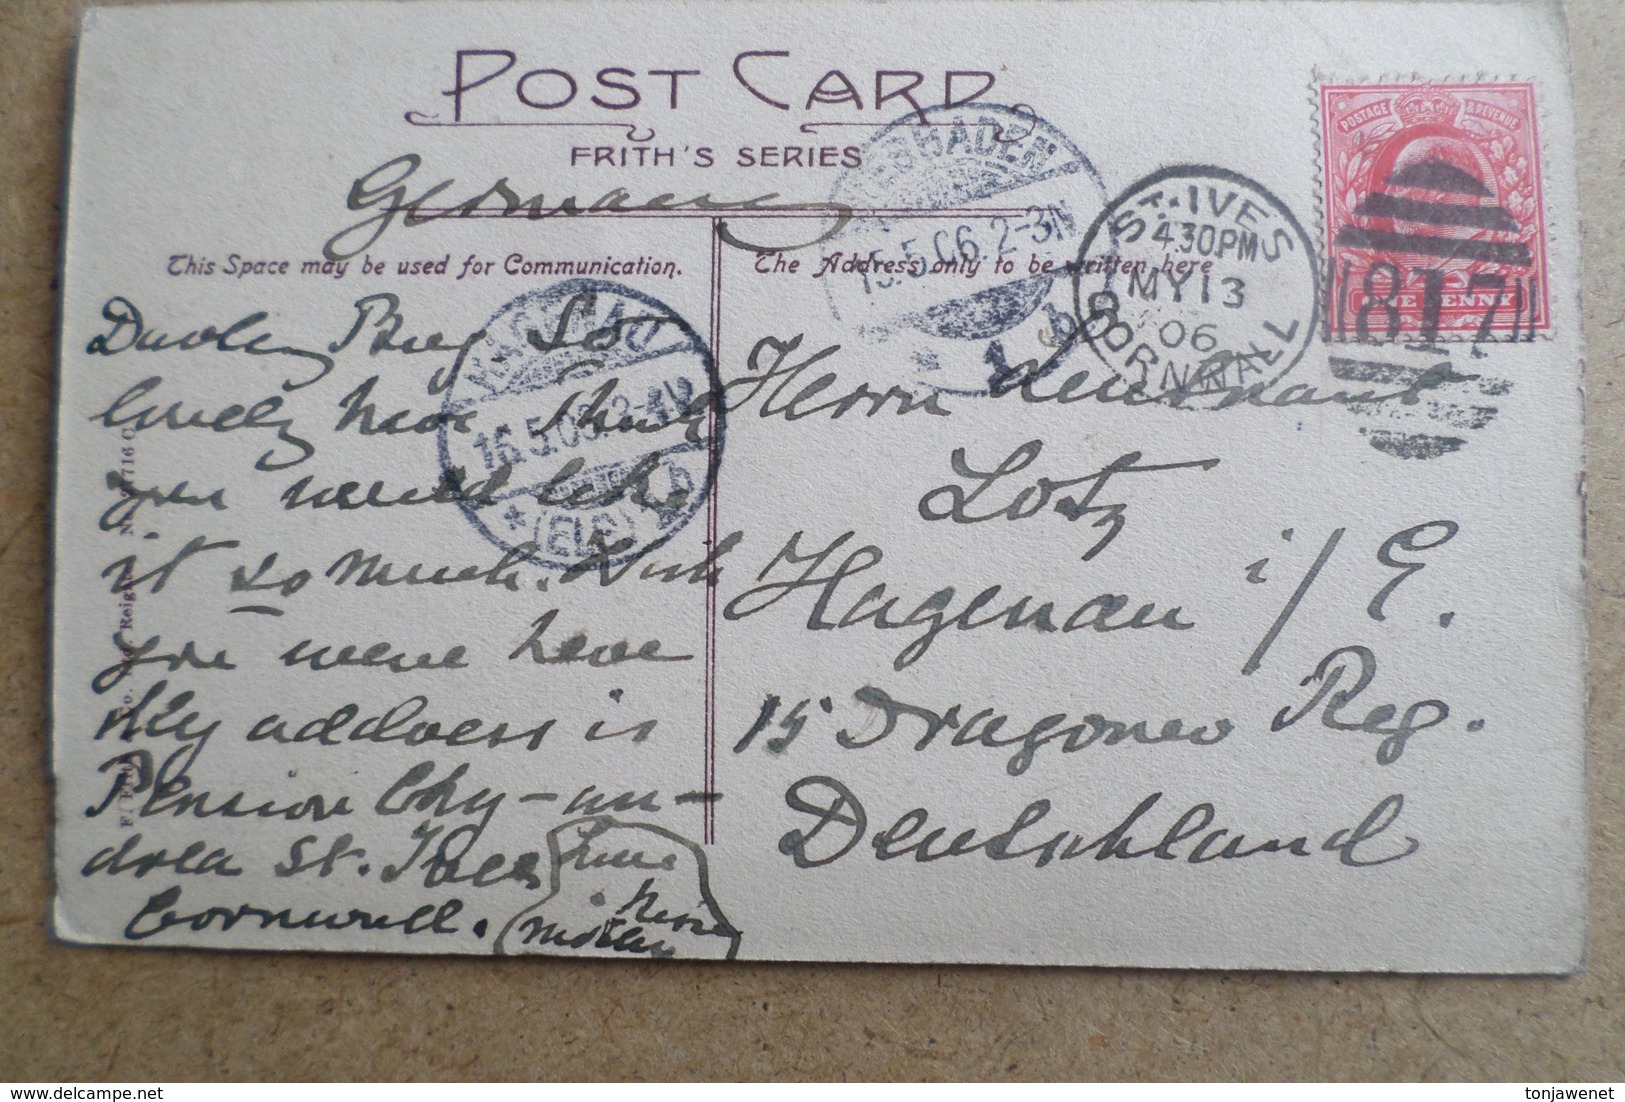 POST CARD
FRITH'S SERIES
Germany
This Space may be used for Communication.
The Address only to be written here
POSTAGE & REVENUE
ONE PENNY
817
ST. IVES
4.30PM
MY 13
06
CORNWALL
WIESBADEN
15.5.06 2-3N
1
HAGENAU
16.5.06
(ELS)
Darling So
lovely here Think
you would like
it so much. Wish
you were here
My address is
Pension Chy-an-
drea St. Ives
Cornwall.
Mother
Herrn Leutnant
Lotz
Hagenau i/E.
15 Dragoner Reg.
Deutschland
Delcampe.net
tonjawenet